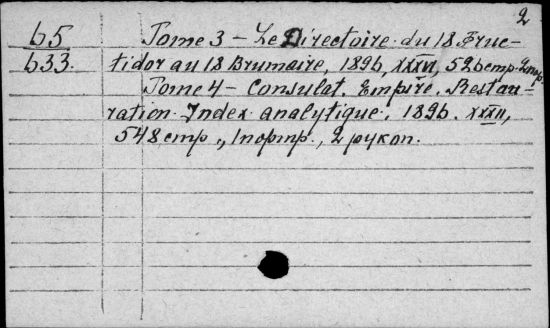 2
65 Tome 3 - Le Directoire du 18 Fruc-
633. tidor au 18 Brumaire, 1896, XXXVI, 526 стр. 1 пор.
Tome 4 - Consulat. Empire. Restau-
ration. Index analytique. 1896. XXXII,
548 стр., 1 портр., 2 рукоп.